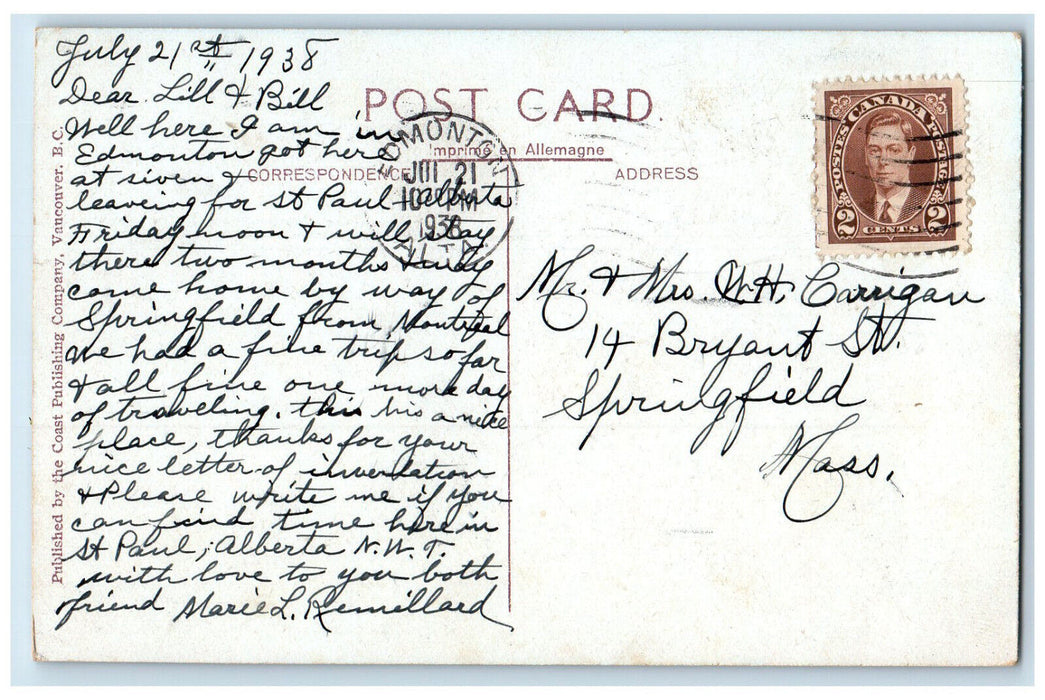 July 21st 1938
Dear Lill & Bill
Well here I am in
Edmonton got here
at siven &
leaveing for St Paul Alberta
Friday noon & will stay
there two months &
come home by way of
Springfield from Montreal
We had a fine trip so far
& all fine one more day
of traveling. this his a nice
place, thanks for your
nice letter of
& Please write me if you
can find time here in
St Paul, Alberta N.W.T.
with love to you both
friend Marie L. Remillard
POST CARD.
Imprimé en Allemagne
CORRESPONDENCE
ADDRESS
EDMONTON
JUL 21
10 PM
1938
ALTA
CANADA
POSTES POSTAGE
2 CENTS 2
Mr. & Mrs. W.H. Carrigan
14 Bryant St.
Springfield
Mass.
Published by the Coast Publishing Company, Vancouver. B.C.